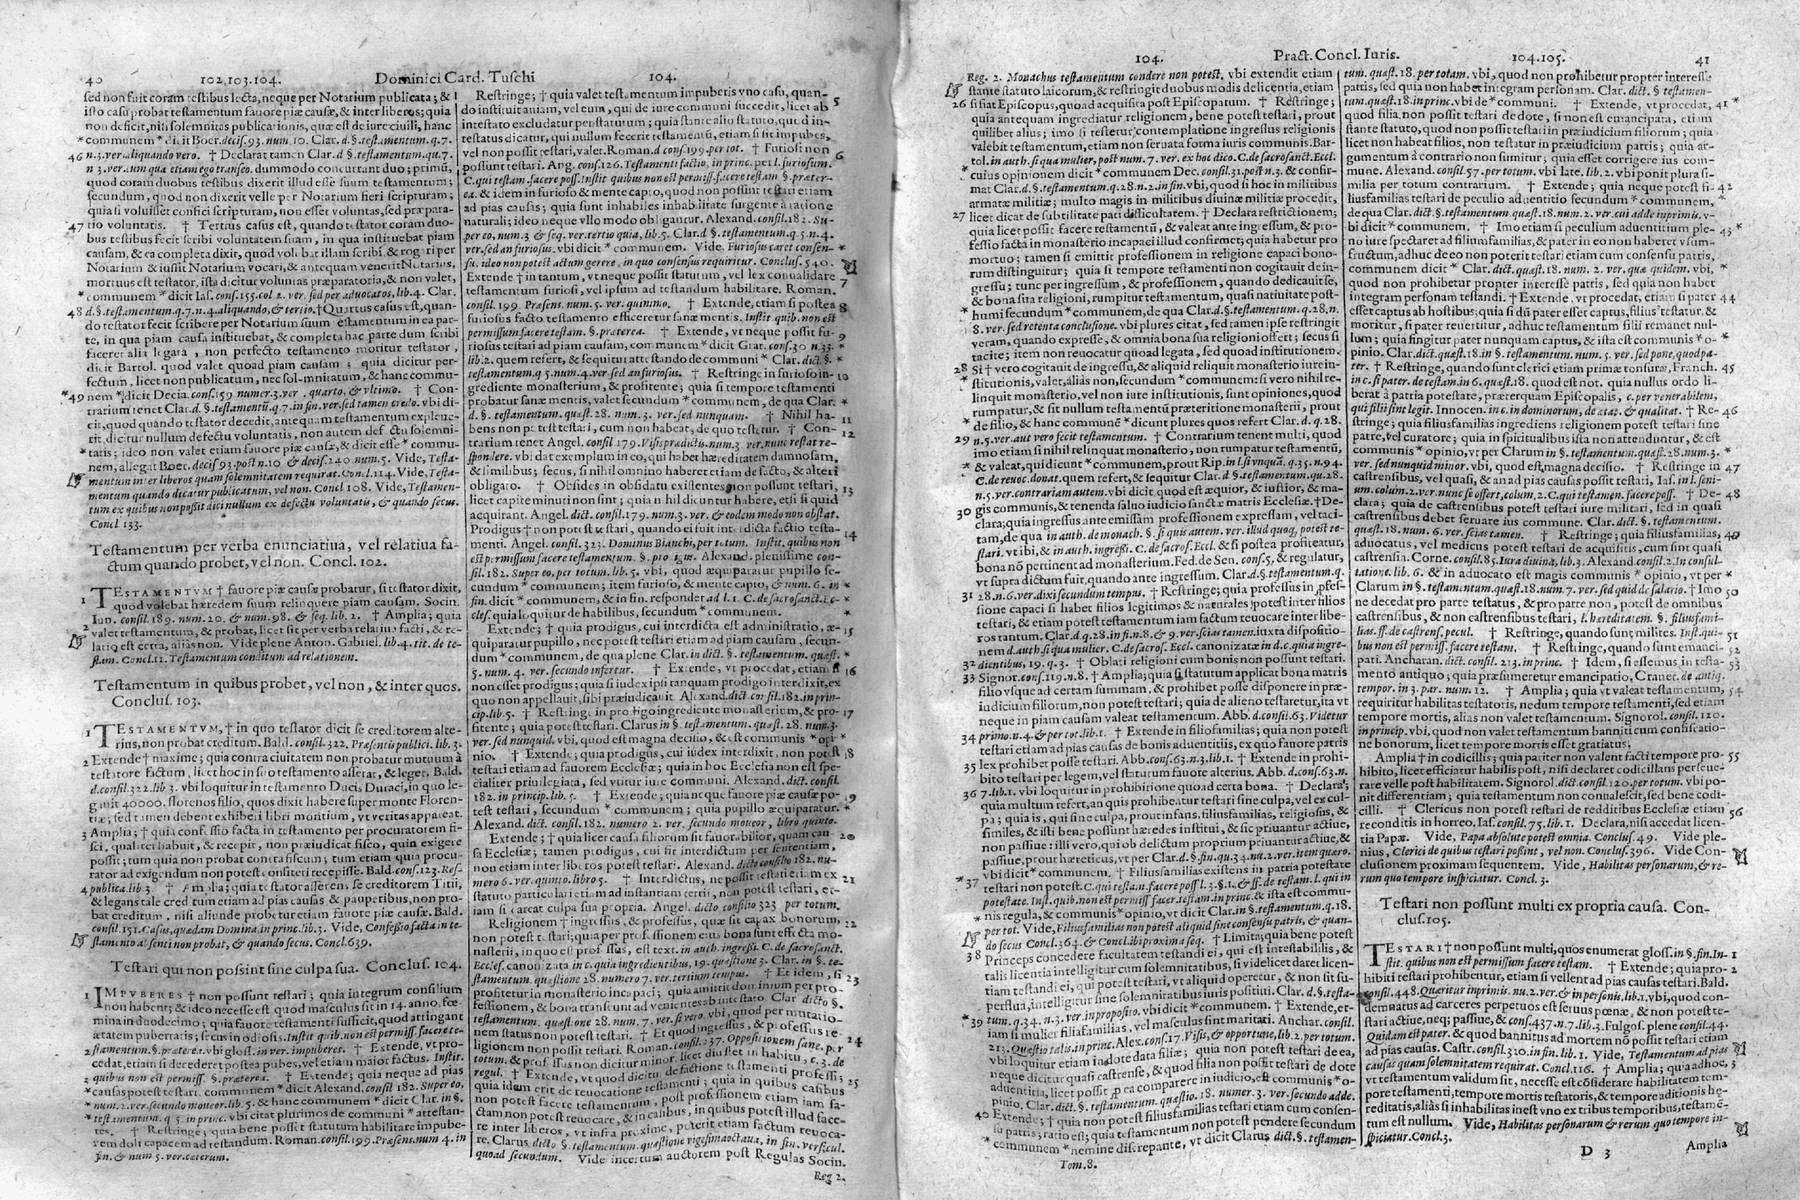 40 102.103.104. Dominici Card. Tuschi 104.
sed non fuit coram testibus lecta, neque per Notarium publicata; &
isto casu probat testamentum fauore piæ causæ, & inter liberos; quia
non deficit, nisi solemnitas publicationis, quæ est de iure ciuili, hanc
* communem * dicit Boer. decis. 93. num. 10. Clar. d. §. testamentum. q. 7.
46 n. 3. ver. aliquando vero. † Declarat tamen Clar. d. §. testamentum. qu. 7.
n. 3. verum qua etiam ego transeo. dummodo concurrant duo; primũ,
quod coram duobus testibus dixerit illud esse suum testamentum;
secundum, quod non dixerit velle per Notarium fieri scripturam;
quia si voluisset confici scripturam, non esset voluntas, sed præpara-
47 tio voluntatis. † Tertius casus est, quando testator coram duo-
bus testibus fecit scribi voluntatem suam, in qua instituebat piam
causam, & ea completa dixit, quod volebat illam scribi, & rogari per
Notarium & iussit Notarium vocari, & antequam venerit Notarius,
mortuus est testator, ista dicitur voluntas præparatoria, & non valet,
* communem * dicit Ias. cons. 155. col. 2. ver. sed per aduocatos, lib. 4. Clar.
48 d. §. testamentum. q. 7. n. 4. aliquando, & tertio. † Quartus casus est, quan-
do testator fecit scribere per Notarium suum testamentum in ea par-
te, in qua piam causa instituebat, & completa hac parte dum scribi
faceret alia legata, non perfecto testamento moritur testator,
dicit Bartol. quod valet quoad piam causam; quia dicitur per-
fectum, licet non publicatum, nec solemnitatum, & hanc commu-
*49 nem * dicit Decia. cons. 159. numer. 3. ver. quarto, & vltimo. † Con-
trarium tenet Clar. d. §. testamentũ. q. 7. in fin. ver. sed tamen credo. vbi di-
cit, quod quando testator decedit, antequam testamentum expleue-
rit, dicitur nullum defectu voluntatis, non autem defectu solemni-
* tatis; ideo non valet etiam fauore piæ causæ, & dicit esse * commu-
nem, allegat Boer. decis. 93. post n. 10 & decis. 240. num. 5. Vide, Testa-
mentum inter liberos quam solemnitatem requirat. Concl. 114. Vide, Testa-
mentum quando dicatur publicatum, vel non. Concl. 108. Vide, Testamen-
tum ex quibus non possit dici nullum ex defectu voluntatis, & quando secus.
Concl. 133.
Testamentum per verba enunciatiua, vel relatiua fa-
ctum quando probet, vel non. Concl. 102.
1 TESTAMENTVM † fauore piæ causæ probatur, si testator dixit,
quod volebat hæredem suum relinquere piam causam. Socin.
Iun. consil. 189. num. 20. & num. 98. & seq. lib. 2. † Amplia; quia
2 valet testamentum, & probat, licet sit per verba relatiua facti, & re-
latio est certa, aliàs non. Vide plene Anton. Gabriel. lib. 4. tit. de te-
stam. Concl. 12. Testamentum conditum ad relationem.
Testamentum in quibus probet, vel non, & inter quos.
Conclus. 103.
1 TESTAMENTVM, † in quo testator dicit se creditorem alte-
rius, non probat creditum. Bald. consil. 322. Præsentis publici. lib. 3.
2 Extende † maxime; quia contra ciuitatem non probatur mutuum à
testatore factum, licet hoc in suo testamento asserat, & leget. Bald.
d. consil. 322. lib. 3. vbi loquitur in testamento Ducis Duraci, in quo le-
gauit 40000. florenos filio, quos dixit habere super monte Floren-
tiæ; sed tamen debent exhiberi libri montium, vt veritas appareat.
3 Amplia; † quia confessio facta in testamento per procuratorem fi-
sci, qualiter habuit, & recepit, non præiudicat fisco, quin exigere
possit; tum quia non probat contra fiscum; tum etiam quia procu-
rator ad exigendum non potest confiteri recepisse. Bald. cons. 123. Res-
4 publica. lib. 3. † Amplia; quia testator asserens se creditorem Titii,
& legans tale creditum etiam ad pias causas & pauperibus, non pro-
bat creditum, nisi aliunde probetur etiam fauore piæ causæ. Bald.
consil. 151. Casus, quædam Domina, in princ. lib. 3. Vide, Confessio facta in te-
stamento absenti non probat, & quando secus. Concl. 639.
Testari qui non possint sine culpa sua. Conclus. 104.
1 IMPVBERES † non possunt testari; quia integrum consilium
non habent; & ideo necesse est quod masculus sit in 14. anno, fœ-
mina in duodecimo; quia fauore testamenti sufficit, quod attingant
ætatem pubertatis; secus in odiosis. Instit. quib. non est permiss. facere te-
2 stamentum. §. præterea. vbi gloss. in ver. impuberes. † Extende, vt pro-
cedat, etiam si decederet postea pubes, vel etiam maior factus. Instit.
3 quibus non est permiss. §. præterea. † Extende; quia neque ad pias
* causas potest testari. communem * dicit Alexand. consil. 182. Super eo,
* num. 2. ver. secundo moueor. lib. 5. & hanc communem * dicit Clar. in §.
* testamentum. q. 5. in princ. vbi citat plurimos de communi * attestan-
tes. † Restringe; quia bene posset statutum habilitare impube-
rem doli capacem ad testandum. Roman. consil. 199. Præsens. num. 4. in
fin. & num. 5. ver. caterum.
Restringe; † quia valet testamentum impuberis vno casu, quan- 5
do instituit auiam, vel eum, qui de iure communi succedit, licet ab
intestato excludatur per statutum; quia stante alio statuto, quod in-
testatus dicatur, qui nullum fecerit testamentũ, etiam si sit impubes,
vel non possit testari, valet. Roman. d. cons. 199. per tot. † Furiosi non 6
possunt testari. Ang. cons. 126. Testamenti factio, in princ. per l. furiosum.
C. qui testam. facere poss. Instit. quibus non est permiss. facere testam §. præter-
ea. & idem in furioso & mente capto, quod non possunt testari etiam
ad pias causas; quia sunt inhabiles inhabilitate surgente à ratione
naturali; ideo neque vllo modo obligantur. Alexand. consil. 182. Su-
per eo, num. 3 & seq. ver. tertio quia, lib. 5. Clar. d §. testamentum. q. 5. n. 4.
ver. sed an furiosus. vbi dicit * communem. Vide, Furiosus caret consen- *
su, ideo non potest actum gerere, in quo consensus requiritur. Conclus. 540.
Extende † in tantum, vt neque possit statutum, vel lex conualidare 7
testamentum furiosi, vel ipsum ad testandum habilitare. Roman.
consil. 199. Præsens. num. 5. ver. quinimo. † Extende, etiam si postea 8
furiosus facto testamento efficeretur sanæ mentis. Instit quib. non est
permissum facere testam. §. præterea. † Extende, vt neque possit fu- 9
riosus testari ad piam causam, communem * dicit Grat. cons. 30 n. 33. *
lib. 2. quem refert, & sequitur attestando de communi * Clar. dict. §. *
testamentum. q 5. num. 4. ver. sed an furiosus. † Restringe in furioso in- 10
grediente monasterium, & profitente; quia si tempore testamenti
probatur sanæ mentis, valet secundum * communem, de qua Clar. *
d. §. testamentum. quæst. 28. num. 3. ver. sed nunquam. † Nihil ha- 11
bens non potest testari, cum non habeat, de quo testetur. † Con- 12
trarium tenet Angel. consil 179. Visis prædictis. num. 3 ver. nunc restat re-
spondere. vbi dat exemplum in eo, qui habet hæreditatem damnosam,
& similibus; secus, si nihil omnino haberet etiam de facto, & alteri
obligato. † Obsides in obsidatu existentes non possunt testari, 13
licet capite minuti non sint; quia nihil dicuntur habere, etsi si quid
acquirant. Angel. dict. consil. 179. num. 3. ver. & eodem modo non obstat.
Prodigus † non potest testari, quando ei fuit interdicta factio testa- 14
menti. Angel. consil. 323. Dominus Bianchi, per totum. Instit. quibus non
est permissum facere testamentum, §. prodigus. Alexand. plenissime con-
sil. 182. Super eo, per totum. lib. 5. vbi, quod æquiparatur pupillo se-
cundum * communem; item furioso, & mente capto, & num. 6. in *
fin. dicit * communem, & in fin. responder ad l. 1. C. de sacrosanct. Ec- *
cles. quia loquitur de habilibus, secundum * communem. *
Extende; † quia prodigus, cui interdicta est administratio, æ- 15
quiparatur pupillo, nec potest testari etiam ad piam causam, secun-
dum * communem, de qua plene Clar. in dict. §. testamentum. quæst. *
5. num. 4. ver. secundo infertur. † Extende, vt procedat, etiam si 16
non esset prodigus; quia si iudex ipsi tanquam prodigo interdixit, ex
quo non appellauit, sibi præiudicauit. Alexand. dict consil. 182. in prin-
cip. lib. 5. † Restringe in prodigo ingrediente monasterium, & pro- 17
fitente; quia potest testari. Clarus in §. testamentum. quæst. 28. num. 3.
ver. sed nunquid. vbi, quod est magna decisio, & est communis * opi- *
nio. † Extende; quia prodigus, cui iudex interdixit, non potest 18
testari etiam ad fauorem Ecclesiæ; quia in hoc Ecclesia non est spe-
cialiter priuilegiata, sed vtitur iure communi. Alexand. dict. consil.
182. in princip. lib. 5. † Extende; quia neque fauore piæ causæ po- 19
test testari, secundum * communem; quia pupillo æquiparatur. *
Alexand. dict. consil. 182. numero 2. ver. secundo moueor, libro quinto.
Extende; † quia licet causa filiorum sit fauorabilior, quam cau- 20
sa Ecclesiæ; tamen prodigus, cui sit interdictum per sententiam,
etiam inter liberos potest testari. Alexand. dicto consilio 182. nu-
mero 6. ver. quinto. libro 5. † Interdictus, ne possit testari etiam ex 21
statuto particulari etiam ad instantiam certi, non potest testari, et-
iam si careat culpa sua propria. Angel. dicto consilio 323 per totum.
Religionem † ingressus, & professus, quæ sit capax bonorum, 22
non potest testari; quia per professionem eius bona sunt effecta mo-
nasterii, in quo est professus, est text. in auth. ingressi. C. de sacrosanct.
Eccles. canonizata in c. quia ingredientibus, 19. quæstione 3. Clar. in §. te-
stamentum. quæstione 28. numero 7. ver. tertium tempus. † Et idem, si 23
profiteretur in monasterio incapaci; quia amittit dominium per pro-
fessionem, & bona transeunt ad venientes ab intestato. Clar dicto §.
testamentum. quæstione 28. num. 7. ver. si vero. vbi, quod per mutatio-
nem status non potest testari. † Et quod ingressus, & professus re- 24
ligionem non possit testari. Roman. consil. 237. Oppositionem sane. per
totum. & professus non dicitur minor. licet diu stet in habitu, c. 3. de
regul. † Extende, vt quod dicitur de factione testamenti professi; 25
quia idem erit de reuocatione testamenti; quia in quibus casibus
non potest facere testamentum, post professionem etiam iam fa-
ctam non potest reuocare, & in casibus, in quibus potest illud face-
re inter liberos, vt infra proxime, poterit etiam factum reuoca-
re. Clarus dicto §. testamentum, quæstione vigesima octaua, in fin. versicul.
quoad secundum. Vide incertum auctorem post Regulas Socin.
Reg 2.
104. Pract. Concl. Iuris. 104.105. 41
Reg. 2. Monachus testamentum condere non potest, vbi extendit etiam
stante statuto laicorum, & restringit duobus modis delicentia, etiam
26 si fiat Episcopus, quoad acquisita post Episcopatum. † Restringe;
quia antequam ingrediatur religionem, bene potest testari, prout
quilibet alius; imo si testetur contemplatione ingressus religionis
valebit testamentum, etiam non seruata forma iuris communis. Bar-
tol. in auth. si qua mulier, post num. 7. ver. ex hoc dico. C. de sacrosanct. Eccl.
* cuius opinionem dicit * communem Dec. consil. 31. post n. 3. & confir-
mat Clar. d. §. testamentum. q. 28. n. 2. in fin. vbi, quod si hoc in militibus
armatæ militiæ; multo magis in militibus diuinæ militiæ procedit,
27 licet dicat de subtilitate pati difficultatem. † Declara restrictionem;
quia licet possit facere testamentũ, & valeat ante ingressum, & pro-
fessio facta in monasterio incapaci illud confirmet; quia habetur pro
mortuo; tamen si emittit professionem in religione capaci bono-
rum distinguitur; quia si tempore testamenti non cogitauit de in-
gressu; tunc per ingressum, & professionem, quando dedicauit se,
& bona sua religioni, rumpitur testamentum, quasi natiuitate post-
* humi secundum * communem, de qua Clar. d. §. testamentum. q. 28. n.
8. ver. sed retenta conclusione. vbi plures citat, sed tamen ipse restringit
veram, quando expresse, & omnia bona sua religioni offert; secus si
tacite; item non reuocatur quoad legata, sed quoad institutionem.
28 Si † vero cogitauit de ingressu, & aliquid reliquit monasterio iure in-
* stitutionis, valet, aliàs non, secundum * communem: si vero nihil re-
linquit monasterio, vel non iure institutionis, sunt opiniones, quod
rumpatur, & sit nullum testamentũ præteritione monasterii, prout
* de filio, & hanc communẽ * dicunt plures quos refert Clar. d. q. 28.
29 n. 5. ver. aut vero fecit testamentum. † Contrarium tenent multi, quod
imo etiam si nihil relinquat monasterio, non rumpatur testamentũ,
* & valeat, qui dicunt * communem, prout Rip. in l. si vnquã. q. 35. n. 94.
* C. de reuoc. donat. quem refert, & sequitur Clar. d. §. testamentum. qu. 28.
n. 5. ver. contrariam autem. vbi dicit quod est æquior, & iustior, & ma-
* gis communis, & tenenda saluo iudicio sanctæ matris Ecclesiæ. † De-
30 clara; quia ingressus ante emissam professionem expressam, vel taci-
tam, de qua in auth. de monach. §. si quis autem. ver. illud quoq; potest te-
stari. vt ibi, & in auth. ingressi. C. de sacros. Eccl. & si postea profiteatur,
bona nõ pertinent ad monasterium. Fed. de Sen. cons. 5, & regulatur,
vt supra dictum fuit, quando ante ingressum. Clar. d. §. testamentum. q.
31 28. n. 6. ver. dixi secundum tempus. † Restringe; quia professus in pfes-
sione capaci si habet filios legitimos & naturales potest inter filios
testari, & etiam potest testamentum iam factum reuocare inter libe-
ros tantum. Clar. d. q. 28. in fi. n. 8. & 9. ver. scias tamen. iuxta dispositio-
nem d. auth. si qua mulier. C. de sacros. Eccl. canonizatæ in d. c. quia ingre-
32 dientibus, 19. q. 3. † Oblati religioni cum bonis non possunt testari.
33 Signor. cons. 119. n. 8. † Amplia; quia si statutum applicat bona matris
filio vsque ad certam summam, & prohibet posse disponere in præ-
iudicium filiorum, non potest testari; quia de alieno testaretur, ita vt
neque in piam causam valeat testamentum. Abb. d. consil. 63. Videtur
34 primo. u. 4. & per tot. lib. 1. † Extende in filiofamilias; quia non potest
testari etiam ad pias causas de bonis aduentitiis, ex quo fauore patris
35 lex prohibet posse testari. Abb. cons. 63. n. 3. lib. 1. † Extende in prohi-
bito testari per legem, vel statutum fauore alterius. Abb. d. cons. 63. n.
36 7. lib. 1. vbi loquitur in prohibitione quoad certa bona. † Declara;
quia multum refert, an quis prohibeatur testari sine culpa, vel ex cul-
pa; quia is, qui sine culpa, prout infans, filiusfamilias, religiosus, &
similes, & isti bene possunt hæredes institui, & sic priuantur actiue,
non passiue: illi vero, qui ob delictum proprium priuantur actiue, &
passiue, prout hæreticus, vt per Clar. d. §. fin. qu. 34. nu. 2. ver. item quæro.
* vbi dicit * communem. † Filiusfamilias existens in patria potestate
*37 testari non potest. C. qui testam. facere poss l. 3. §. 1. & ff. de testam. l. qui in
potestate. Inst. quib. non est permiss. facere testam. in princ. & ista est commu-
* nis regula, & communis * opinio, vt dicit Clar. in §. testamentum. q. 18.
per tot. Vide, Filiusfamilias non potest aliquid gerere sine consensu patris, & quan-
do secus Concl. 364. & Concl. ibi proxima seq. † Limita; quia bene potest
38 Princeps concedere facultatem testandi ei, qui est intestabilis, &
talis licentia intelligitur cum solemnitatibus, si videlicet daret licen-
tiam testandi ei, qui potest testari, vt aliquid operetur, & non sit su-
perflua, intelligitur sine solemnitatibus iuris positiui. Clar. d. §. testa-
* tum. q. 34. n. 3. ver. in proposito. vbi dicit * communem. † Extende, et-
39 iam si mulier filiafamilias, vel masculus sint maritati. Anchar. consil.
213. Quæstio talis. in princ. Alex. cons. 17. Visis, & opportune, lib. 2. per totum.
vbi loquitur etiam in dote data filiæ; quia non potest testari de ea,
neque dicitur quasi castrense, & quod filiafamilias testari de dote
aduentitia, licet possit p ea comparere in iudicio, est communis * o-
* pinio. Clar. dict. §. testamentum, quæstio. 18. numer. 3. ver. secundo adde.
40 Extende; † quia non potest filiusfamilias testari etiam cum consen-
su patris; ratio est; quia testamentum non potest pendere secundum
* communem * nemine discrepante, vt dicit Clarus dict. §. testamen-
Tom. 8.
tum. quæst. 18. per totam. vbi, quod non prohibetur propter interesse
patris, sed quia non habet integram personam. Clar. dict. §. testamen-
tum. quæst. 18. in princ. vbi * communi. † Extende, vt procedat, 41 *
quod filia non possit testari de dote, si non est emancipata, etiam
stante statuto, quod non possit testari in præiudicium filiorum; quia
licet non habeat filios, non testatur in præiudicium patris; quia ar-
gumentum à contrario non sumitur; quia esset corrigere ius com-
mune. Alexand. consil. 57. per totum. vbi late. lib. 2. vbi ponit plura si-
milia per totum contrarium. † Extende; quia neque potest fi- 42
liusfamilias testari de peculio aduentitio secundum * communem, *
de qua Clar. dict. §. testamentum. quæst. 18. num. 2. ver. cui adde in primis. v-
bi dicit * communem. † Imo etiam si peculium aduentitium ple- 43 *
no iure spectaret ad filiumfamilias, & pater in eo non haberet vsum-
fructum, adhuc de eo non poterit testari etiam cum consensu patris,
communem dicit * Clar. dict. quæst. 18. num. 2. ver. quæ quidem. vbi, *
quod non prohibetur propter interesse patris, sed quia non habet
integram personam testandi. † Extende, vt procedat, etiam si pater 44
esset captus ab hostibus; quia si dũ pater esset captus, filius testatur. &
moritur, si pater reuertitur, adhuc testamentum filii remanet nul-
lum; quia fingitur pater nunquam captus, & ista est communis * o- *
pinio. Clar. dict. quæst. 18. in §. testamentum. num. 5. ver. sed pone, quod pa-
ter. † Restringe, quando sunt clerici etiam primæ tonsuræ, Franch. 45
in c. si pater. de testam. in 6. quæst. 18. quod est not. quia nullus ordo li-
berat à patria potestate, præterquam Episcopalis, c. per venerabilem,
qui filii sint legit. Innocen. in c. in dominorum, de ætat. & qualitat. † Re- 46
stringe; quia filiusfamilias ingrediens religionem potest testari sine
patre, vel curatore; quia in spiritualibus ista non attenduntur, & est
communis * opinio, vt per Clarum in §. testamentum, quæst. 28. num. 3. *
ver. sed nunquid minor. vbi, quod est magna decisio. † Restringe in 47
castrensibus, vel quasi, & an ad pias causas possit testari, Ias. in l. seni-
um. colum. 2. ver. nunc se offert, colum. 2. C. qui testamen. facere poss. † De- 48
clara; quia de castrensibus potest testari iure militari, sed in quasi
castrensibus debet seruare ius commune. Clar. dict. §. testamentum.
quæst. 18. num. 6. ver. scias tamen. † Restringe; quia filiusfamilias, 49
aduocatus, vel medicus potest testari de acquisitis, cum sint quasi
castrensia. Corne. consil. 85. Iura diuina, lib. 3. Alexand. consil. 2. In consul-
tatione. lib. 6. & in aduocato est magis communis * opinio, vt per *
Clarum in §. testamentum. quæst. 18. num. 7. ver. sed quid de salario. † Imo 50
ne decedat pro parte testatus, & pro parte non, potest de omnibus
castrensibus, & non castrensibus testari, l. hereditatem. §. filiusfami-
lias. ff. de castrens. pecul. † Restringe, quando sunt milites. Inst. qui- 51
bus non est permiss. facere testam. † Restringe, quando sunt emanci- 52
pati. Ancharan. dict. consil. 213. in princ. † Idem, si essemus in testa- 53
mento antiquo; quia præsumeretur emancipatio, Crauet. de antiq.
tempor. in 3. par. num. 12. † Amplia; quia vt valeat testamentum, 54
requiritur habilitas testatoris, nedum tempore testamenti, sed etiam
tempore mortis, alias non valet testamentum. Signorol. consil. 120.
in princip. vbi, quod non valet testamentum banniti cum confiscatio-
ne bonorum, licet tempore mortis esset gratiatus.
Amplia † in codicillis; quia pariter non valent facti tempore pro- 55
hibito, licet efficiatur habilis post, nisi declaret codicillans perseue-
rare velle post habilitatem. Signorol. dict. consil. 120. per totum. vbi po-
nit differentiam; quia testamentum non conualescit, sed bene codi-
cilli. † Clericus non potest testari de redditibus Ecclesiæ etiam 56
reconditis in horreo. Ias. consil. 75. lib. 1. Declara, nisi accedat licen-
tia Papæ. Vide, Papa absolute potest omnia. Conclus. 49. Vide ple-
nius, Clerici de quibus testari possint, vel non. Conclus. 396. Vide Con-
clusionem proximam sequentem. Vide, Habilitas personarum, & re-
rum quo tempore inspiciatur. Concl. 3.
Testari non possunt multi ex propria causa. Con-
clus. 105.
TESTARI † non possunt multi, quos enumerat gloss. in §. fin. In- 1
stit. quibus non est permissum facere testam. † Extende; quia pro- 2
hibiti testari prohibentur, etiam si vellent ad pias causas testari. Bald.
consil. 448. Quæritur inprimis. nu. 2. ver. & in personis, lib. 1. vbi, quod con-
demnatus ad carceres perpetuos est seruus pœnæ, & non potest te-
stari actiue, neq; passiue, & cons. 437. n. 7. lib. 3. Fulgos. plene consil. 44.
Quidam est pater, & quod bannitus ad mortem nõ possit testari etiam
ad pias causas. Castr. consil. 310. in fin. lib. 1. Vide, Testamentum ad pias
causas quam solemnitatem requirat. Concl. 116. † Amplia; quia adhoc, 3
vt testamentum validum sit, necesse est cõsiderare habilitatem tem-
pore testamenti, tempore mortis testatoris, & tempore aditionis he-
reditatis, aliàs si inhabilitas inest vno ex tribus temporibus, testamẽ-
tum est nullum. Vide, Habilitas personarum & rerum quo tempore in-
spiciatur. Concl. 3.
D 3 Amplia